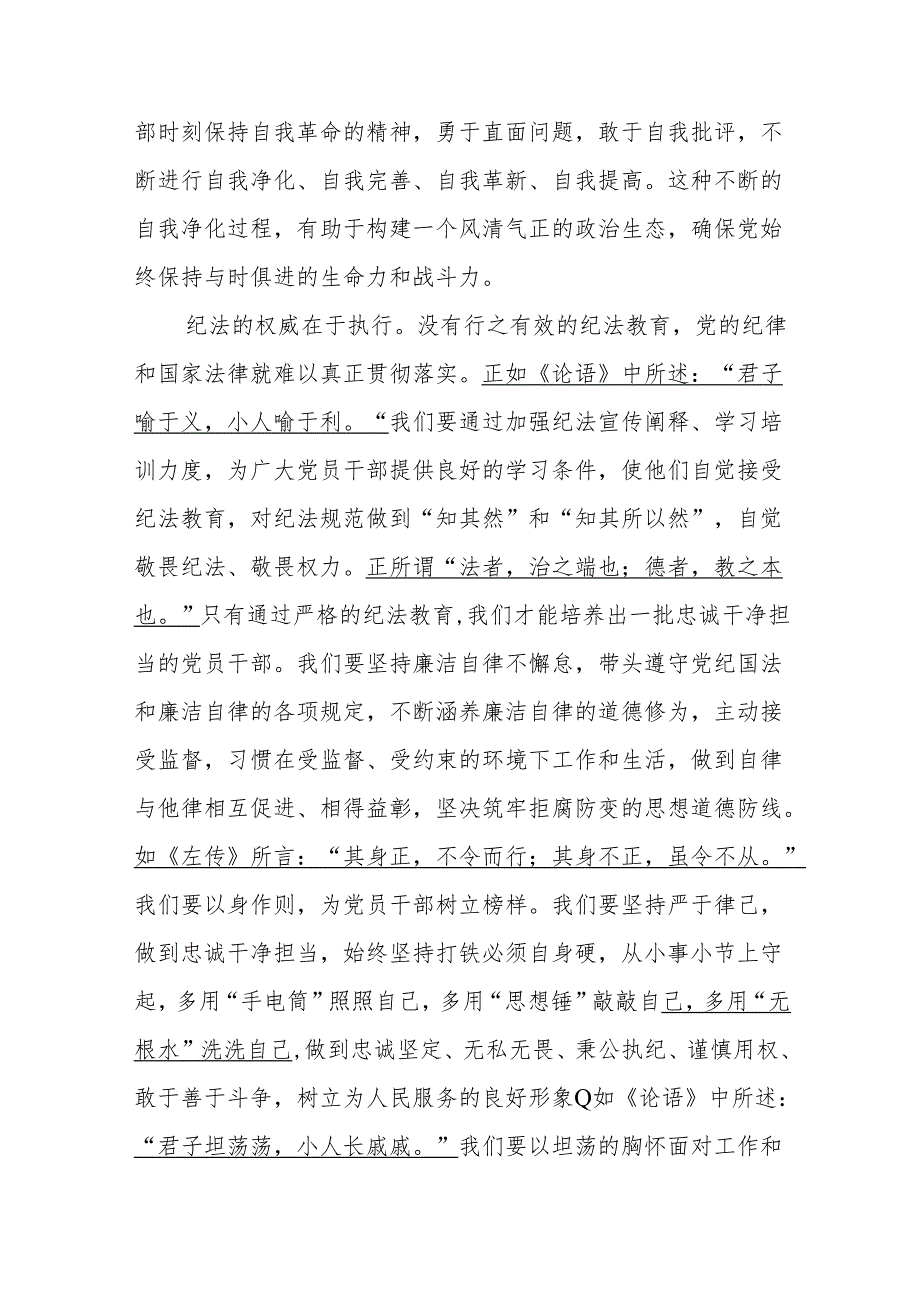 部时刻保持自我革命的精神，勇于直面问题，敢于自我批评，不
断进行自我净化、自我完善、自我革新、自我提高。这种不断的
自我净化过程，有助于构建一个风清气正的政治生态，确保党始
终保持与时俱进的生命力和战斗力。
纪法的权威在于执行。没有行之有效的纪法教育，党的纪律
和国家法律就难以真正贯彻落实。正如《论语》中所述：“君子
喻于义，小人喻于利。“我们要通过加强纪法宣传阐释、学习培
训力度，为广大党员干部提供良好的学习条件，使他们自觉接受
纪法教育，对纪法规范做到“知其然”和“知其所以然”，自觉
敬畏纪法、敬畏权力。正所谓“法者，治之端也；德者，教之本
也。”只有通过严格的纪法教育,我们才能培养出一批忠诚干净担
当的党员干部。我们要坚持廉洁自律不懈怠，带头遵守党纪国法
和廉洁自律的各项规定，不断涵养廉洁自律的道德修为，主动接
受监督，习惯在受监督、受约束的环境下工作和生活，做到自律
与他律相互促进、相得益彰，坚决筑牢拒腐防变的思想道德防线。
如《左传》所言：“其身正，不令而行；其身不正，虽令不从。”
我们要以身作则，为党员干部树立榜样。我们要坚持严于律己，
做到忠诚干净担当，始终坚持打铁必须自身硬，从小事小节上守
起，多用“手电筒”照照自己，多用“思想锤”敲敲自己，多用“无
根水”洗洗自己,做到忠诚坚定、无私无畏、秉公执纪、谨慎用权、
敢于善于斗争，树立为人民服务的良好形象Q如《论语》中所述：
“君子坦荡荡，小人长戚戚。”我们要以坦荡的胸怀面对工作和